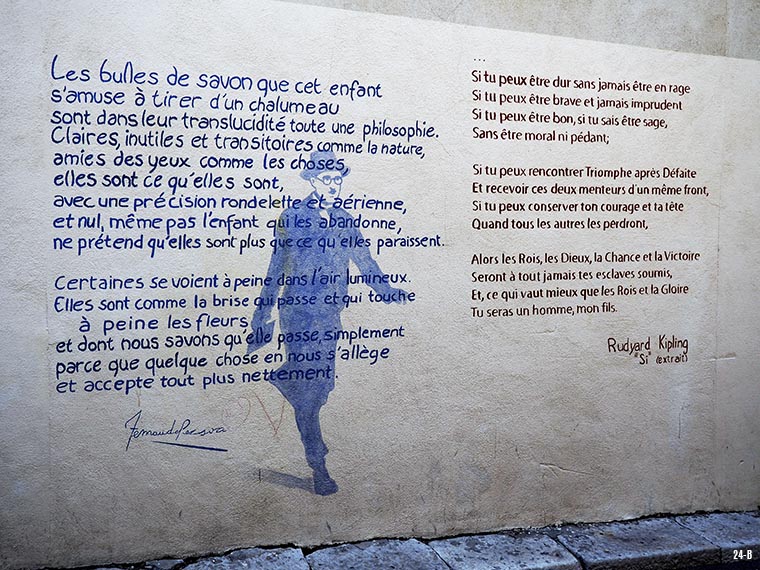 Les bulles de savon que cet enfant
s'amuse à tirer d'un chalumeau
sont dans leur translucidité toute une philosophie.
Claires, inutiles et transitoires comme la nature,
amies des yeux comme les choses,
elles sont ce qu'elles sont,
avec une précision rondelette et aérienne,
et nul, même pas l'enfant qui les abandonne,
ne prétend qu'elles sont plus que ce qu'elles paraissent.
Certaines se voient à peine dans l'air lumineux.
Elles sont comme la brise qui passe et qui touche
à peine les fleurs
et dont nous savons qu'elle passe, simplement
parce que quelque chose en nous s'allège
et accepte tout plus nettement.
Fernando Pessoa
...
Si tu peux être dur sans jamais être en rage
Si tu peux être brave et jamais imprudent
Si tu peux être bon, si tu sais être sage,
Sans être moral ni pédant;
Si tu peux rencontrer Triomphe après Défaite
Et recevoir ces deux menteurs d'un même front,
Si tu peux conserver ton courage et ta tête
Quand tous les autres les perdront,
Alors les Rois, les Dieux, la Chance et la Victoire
Seront à tout jamais tes esclaves soumis,
Et, ce qui vaut mieux que les Rois et la Gloire
Tu seras un homme, mon fils.
Rudyard Kipling
"Si" (extrait)
24-B